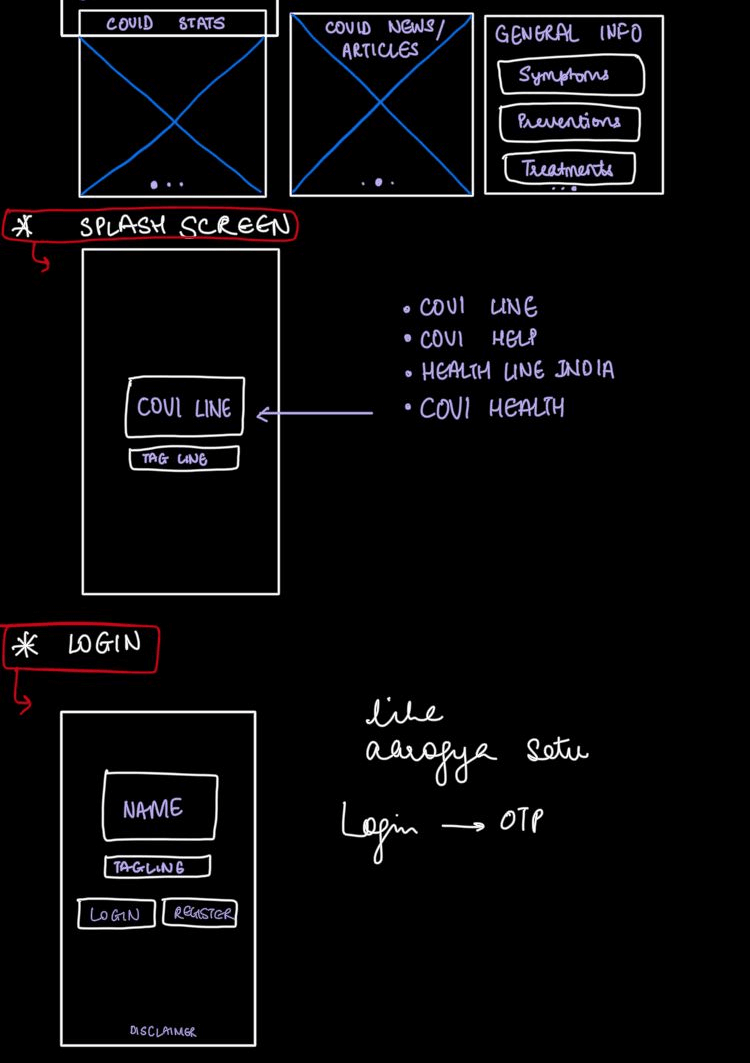 COVID STATS
COVID NEWS/
ARTICLES
GENERAL INFO
Symptoms
Preventions
Treatments
* SPLASH SCREEN
COVI LINE
TAG LINE
• COVI LINE
• COVI HELP
• HEALTH LINE INDIA
• COVI HEALTH
* LOGIN
NAME
TAGLINE
LOGIN REGISTER
DISCLAIMER
like
aarogya setu
Login → OTP